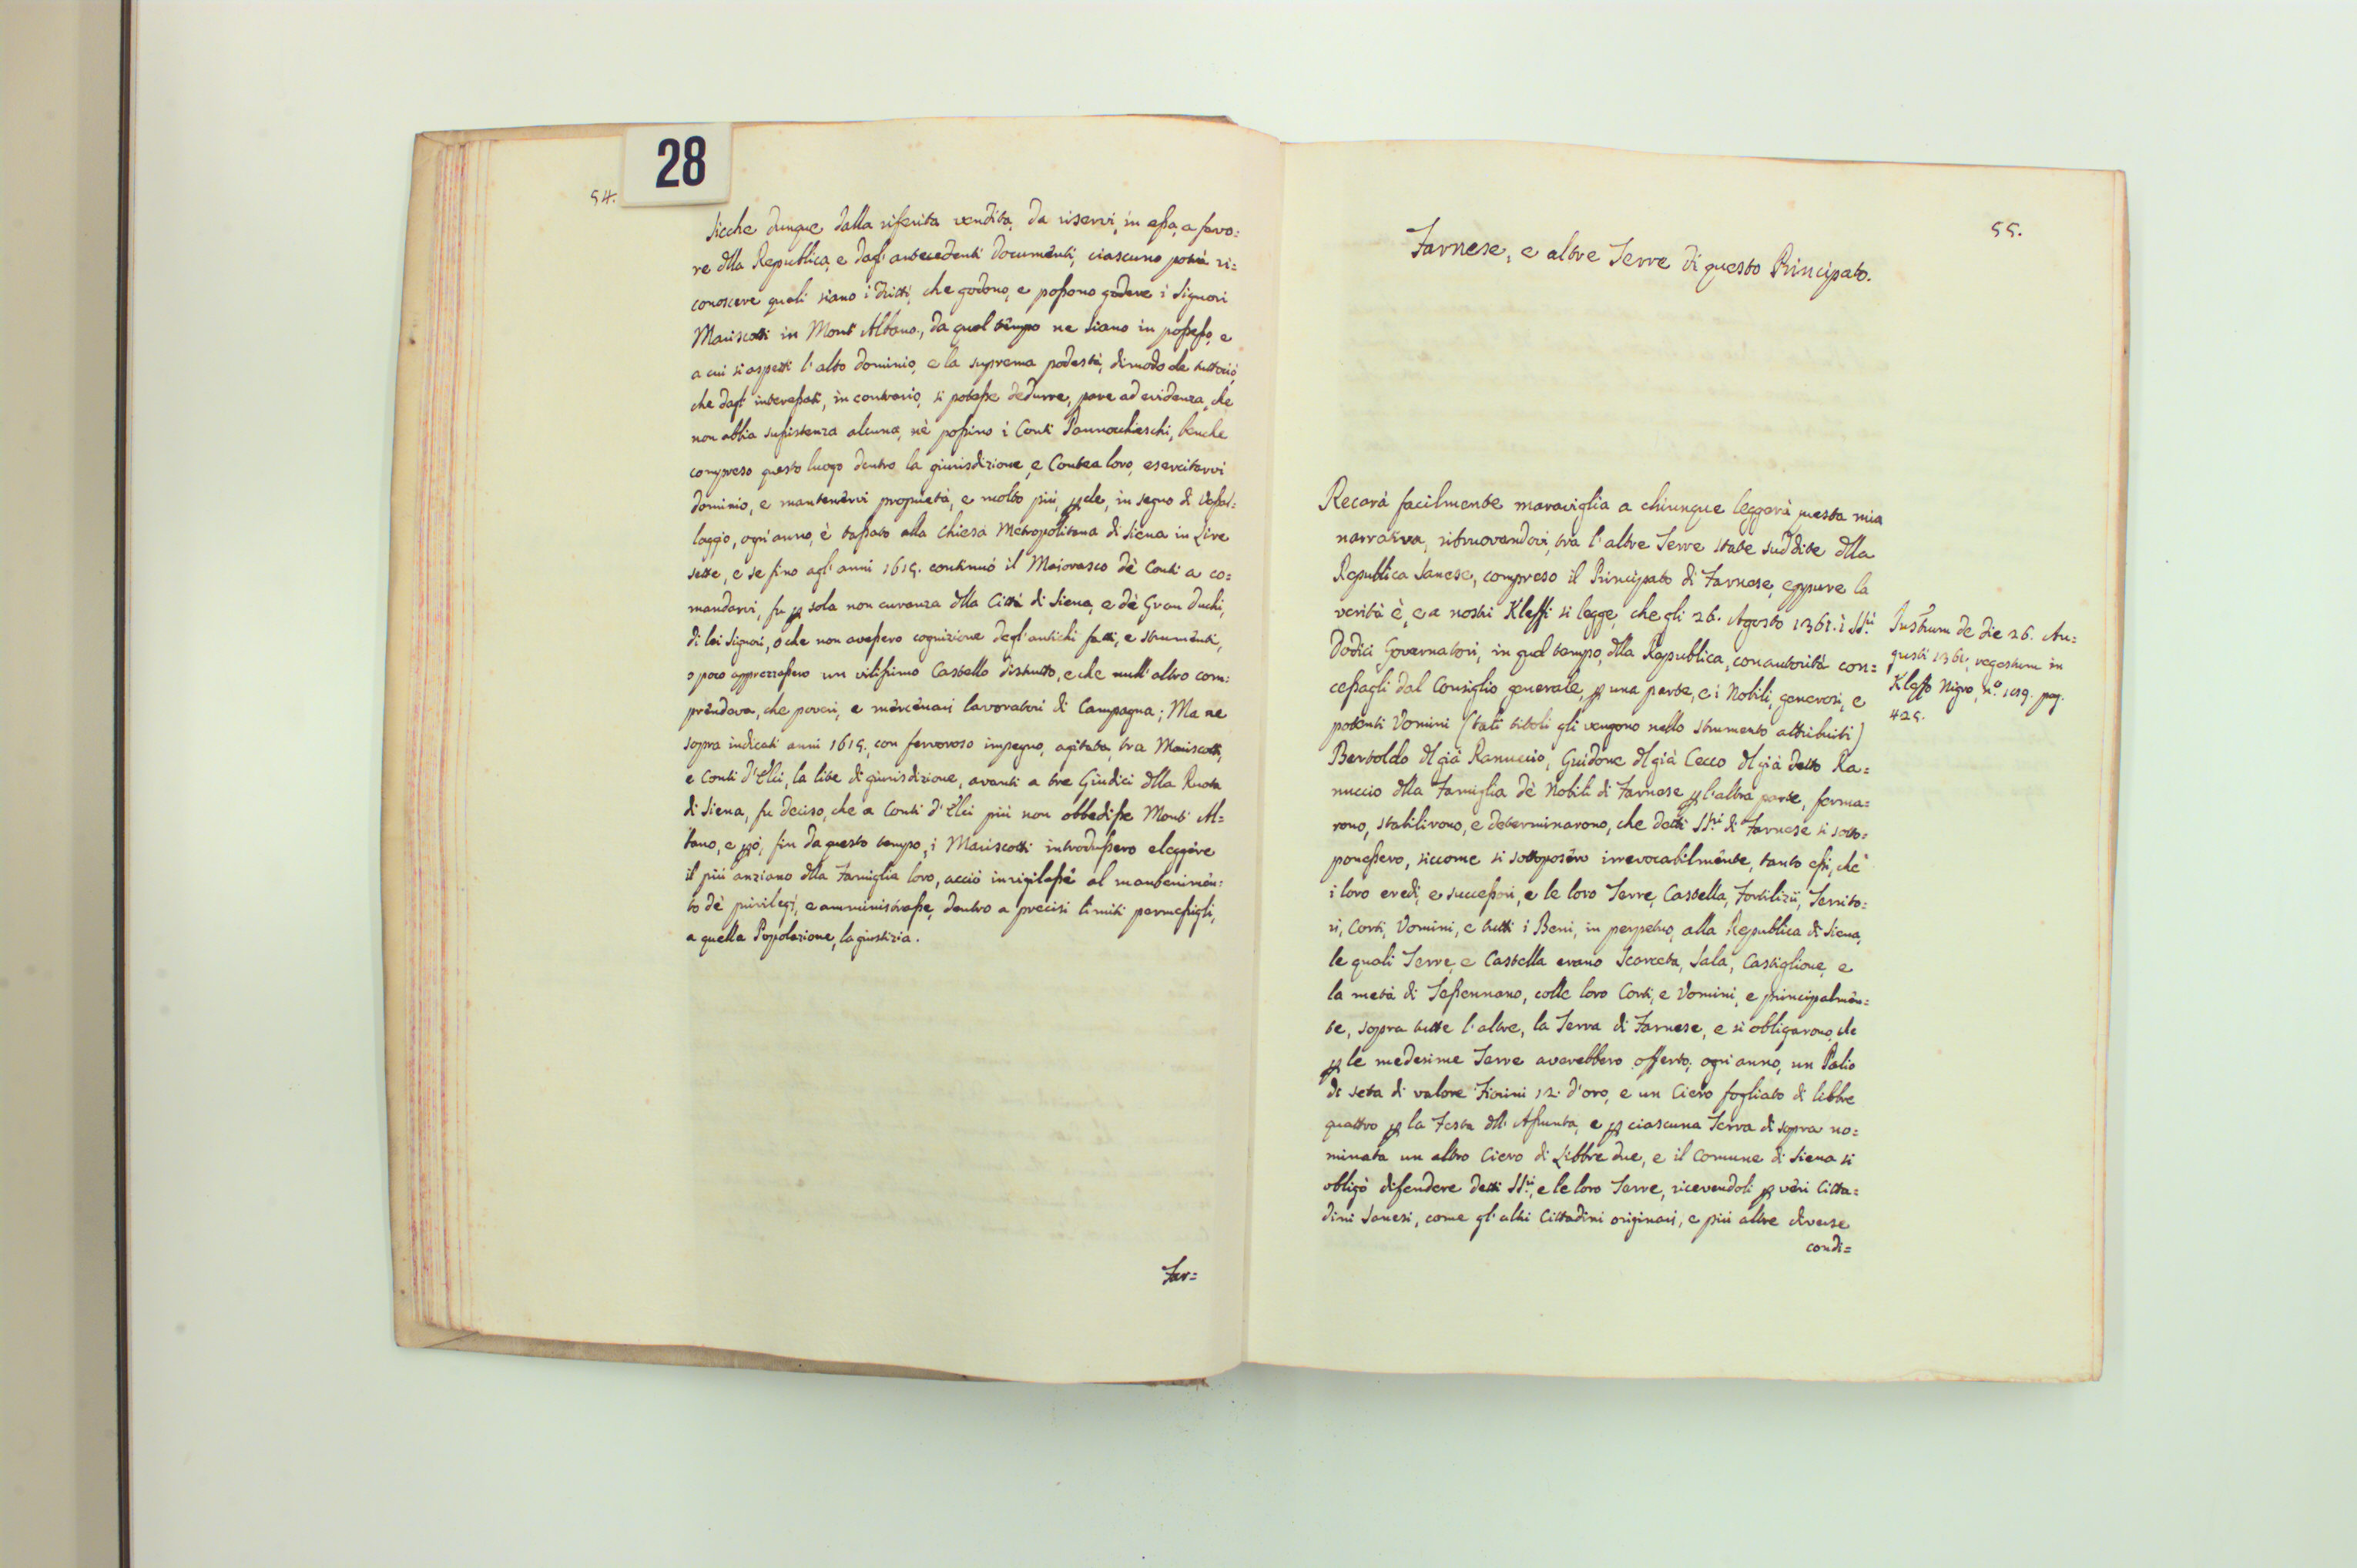 28
54.
Sicche dunque dalla riferita vendita, da riservi, in eßa, a favo=
re dlla Republica, e dagl' antecedenti documenti, ciascuno potrà ri=
conoscere quali siano i dritti, che godono, e poßono godere i Signori
Mariscotti in Mont' Albano, da quel tempo ne siano in poßeßo, e
a cui si aspetti l'alto dominio, e la suprema podestà, dimodo che tuttociò,
che dagl' intereßati, in contrario, si poteße dedurre, pare ad evidenza, che
non abbia sußistenza alcuna, nè poßino i Conti Pannocchieschi, benche
compreso questo luogo dentro la giurisdizione, e Contea loro, esercitarvi
dominio, e mantenervi proprietà, e molto più, ꝑche, in segno di Vaßal=
laggio, ogn' anno, è taßato alla Chiesa Metropolitana di Siena in Lire
sette, e se fino agl' anni 1615. continuò il Maiorasco dè Conti a co=
mandarvi, fu ꝑ sola non curanza dlla Città di Siena, e dè Gran Duchi,
di lei Signori, o che non aveßero cognizione degl' antichi fatti, e strumenti,
o poco apprezzaßero un vilißimo Castello distrutto, e che null' altro com=
prendeva, che poveri, e mercenari lavoratori di Campagna; Ma ne
sopra indicati anni 1615. con fervoroso impegno, agitata, tra Mariscotti,
e Conti d'Elci, la lite di giurisdizione, avanti a tre Giudici dlla Ruota
di Siena, fu deciso, che a Conti d'Elci più non obbediße Mont' Al=
bano, e ꝑò, fin da questo tempo, i Mariscotti introdußero eleggere
il più anziano dlla Famiglia loro, acciò invigilaße al mantenimen=
to dè privilegj, e amministraße, dentro a precisi limiti permeßigli,
a quella Popolazione, la giustizia.
Far=
55.
Farnese, e altre Terre di questo Principato.
Recarà facilmente maraviglia a chiunque leggerà questa mia
narrativa, ritruovandovi, tra l'altre Terre state suddite dlla
Republica Sanese, compreso il Principato di Farnese, eppure la
verità è, e a nostri Kleffi si legge, che gli 26. Agosto 1361. i SS.ri
Dodici Governatori, in quel tempo, dlla Republica, con autorità con=
ceßagli dal Consiglio generale, ꝑ una parte, e i Nobili, generosi, e
potenti Vomini (tali titoli gli vengono nello strumento attribuiti)
Bertoldo dl già Ranuccio, Guidone dl già Cecco dl già detto Ra=
nuccio dlla Famiglia dè Nobili di Farnese ꝑ l'altra parte, ferma=
rono, stabilirono, e determinarono, che detti SS.ri di Farnese si sotto=
poneßero, siccome si sottoposero irrevocabilmente, tanto eßi, che
i loro eredi, e succeßori, e le loro Terre, Castella, Fortilizii, Territo=
ri, Corti, Vomini, e tutti i Beni, in perpetuo, alla Republica di Siena,
le quali Terre, e Castella erano Scarceta, Sala, Castiglione, e
la metà di Teßennano, colle loro Corti, e Vomini, e principalmen=
te, sopra tutte l'altre, la Terra di Farnese, e si obligarono, che
ꝑ le medesime Terre averebbero offerto, ogn' anno, un Palio
di seta di valore Fiorini 12. d'oro, e un Ciero fogliato di libbre
quattro ꝑ la Festa dll' Aßunta, e ꝑ ciascuna Terra di sopra no=
minata un altro Ciero di Libbre due, e il Comune di Siena si
obligò difendere detti SS.ri, e le loro Terre, ricevendoli ꝑ veri Citta=
dini Sanesi, come gl' altri Cittadini originari, e più altre diverse
condi=
Instrum de die 26. Au=
gusti 1361, regestum in
Kleffo Nigro, n.º 159. pag.
425.